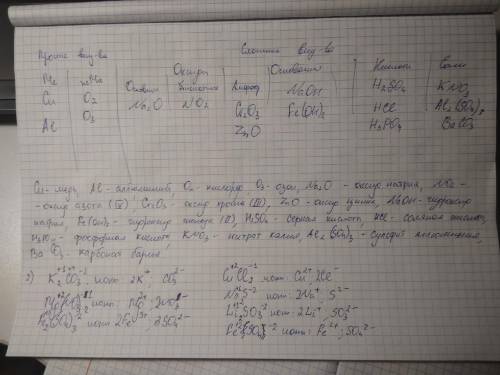 Простые вещ-ва Сложные вещ-ва
Ме неМе Оксиды Основания Кислоты Соли
Основные Кислотные Амфот.
Cu O₂ Na₂O NO₂ Cr₂O₃ NaOH H₂SO₄ KNO₃
Al O₃ ZnO Fe(OH)₂ HCl Al₂(SO₃)₃
H₃PO₄ BaCO₃
Cu - медь, Al - аллюминий, O₂ - кислород, O₃ - озон, Na₂O - оксид натрия, NO₂ -
- оксид азота (IV), Cr₂O₃ - оксид хрома (III), ZnO - оксид цинка, NaOH - гидроксид
натрия, Fe(OH)₂ - гидроксид железа (II), H₂SO₄ - серная кислота, HCl - соляная кислота
H₃PO₄ - фосфорная кислота, KNO₃ - нитрат калия, Al₂(SO₃)₃ - сульфит аллюминия,
BaCO₃ - карбонат бария
2) K₂CO₃ ионы: 2K⁺; CO₃²⁻ CuCl₂ ионы: Cu²⁺; 2Cl⁻
Na₂S ионы: 2Na⁺; S²⁻
Fe₂(SO₄)₃ ионы 2Fe³⁺; 3SO₄²⁻ Li₂SO₃ ионы: 2Li⁺; SO₃²⁻
FeSO₄ ионы: Fe²⁺; SO₄²⁻